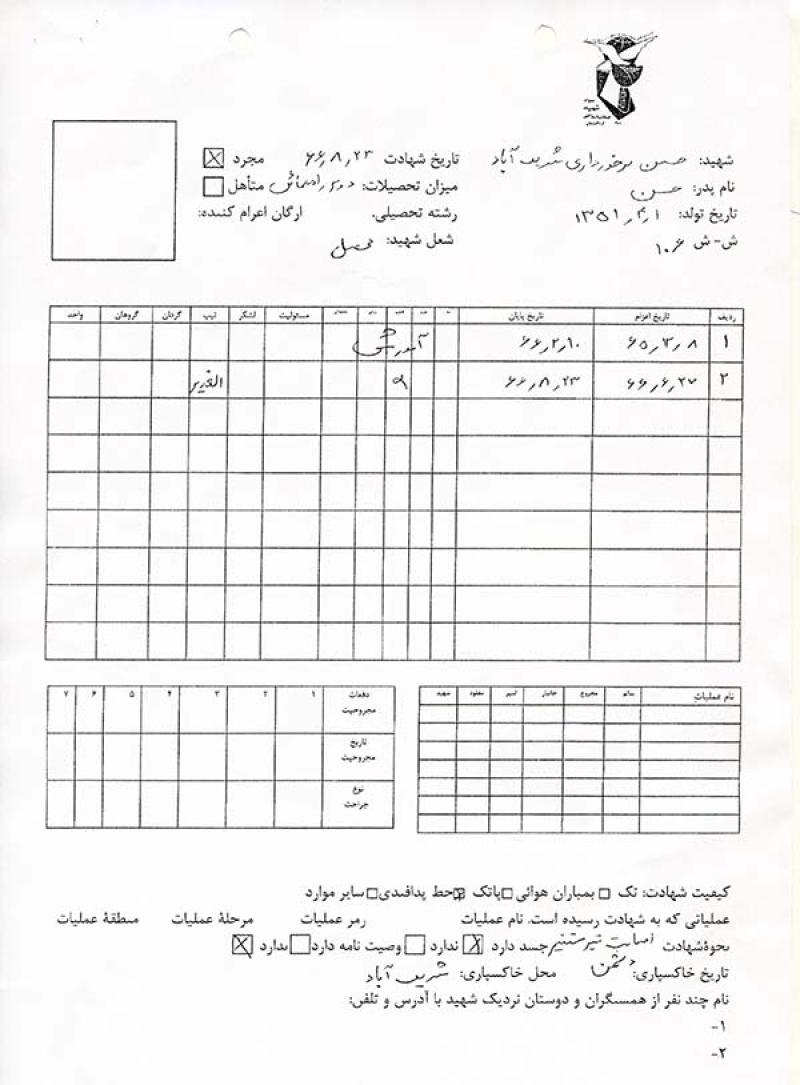 شهید: حسن برخورداری شریف آباد تاریخ شهادت ۶۶٫۸٫۲۳ مجرد
نام پدر: حسن میزان تحصیلات: دوم راهنمائی متأهل
تاریخ تولد: ۱۳۵۱٫۴٫۱ رشته تحصیلی. ارگان اعزام کننده:
ش- ش ۱۰۶ شغل شهید: محصل
ردیف تاریخ اعزام تاریخ پایان مسئولیت لشکر تیپ گردان گروهان واحد
۱ ۶۵٫۳٫۸ ۶۶٫۲٫۱۰ آموزشی
۲ ۶۶٫۶٫۲۷ ۶۶٫۸٫۲۳ الغدیر
نام عملیات سالم مجروح جانباز اسیر مفقود شهید
دفعات مجروحیت ۱ ۲ ۳ ۴ ۵ ۶ ۷
تاریخ مجروحیت
نوع جراحت
کیفیت شهادت: تک بمباران هوائی پاتک خط پدافندی سایر موارد
عملیاتی که به شهادت رسیده است. نام عملیات رمز عملیات مرحلهٔ عملیات منطقهٔ عملیات
نحوهٔ شهادت اصابت تیر مستقیم جسد دارد ندارد وصیت نامه دارد ندارد
دشمن
تاریخ خاکسپاری: محل خاکسپاری: شریف آباد
نام چند نفر از همسنگران و دوستان نزدیک شهید با آدرس و تلفن:
۱-
۲-